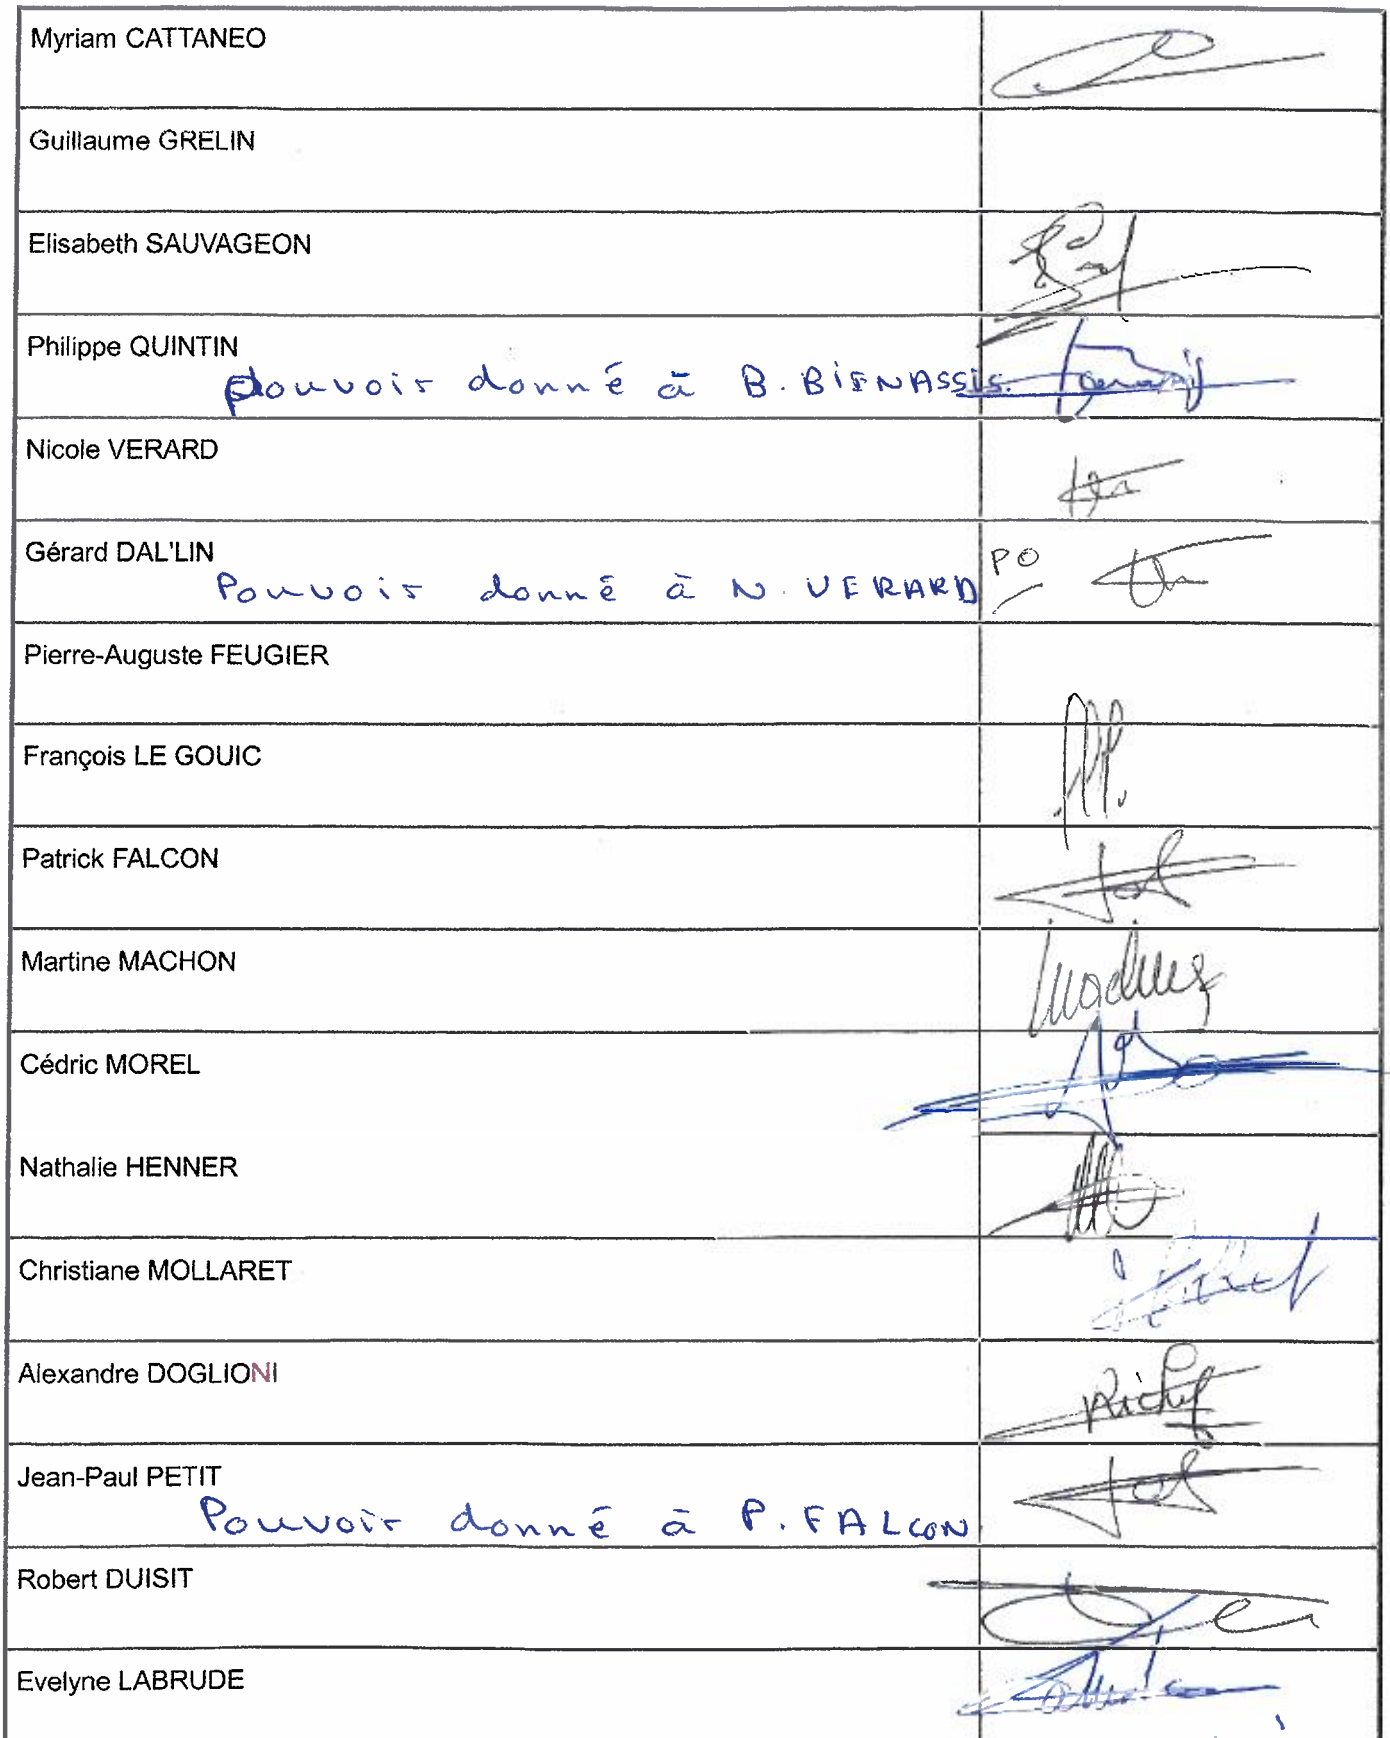 Myriam CATTANEO
Guillaume GRELIN
Elisabeth SAUVAGEON
Philippe QUINTIN
Pouvoir donné à B. BIENASSIS.
Nicole VERARD
Gérard DAL'LIN
PO
Pouvoir donné à N. VERARD
Pierre-Auguste FEUGIER
François LE GOUIC
Patrick FALCON
Martine MACHON
Cédric MOREL
Nathalie HENNER
Christiane MOLLARET
Alexandre DOGLIONI
Jean-Paul PETIT
Pouvoir donné à P. FALCON
Robert DUISIT
Evelyne LABRUDE